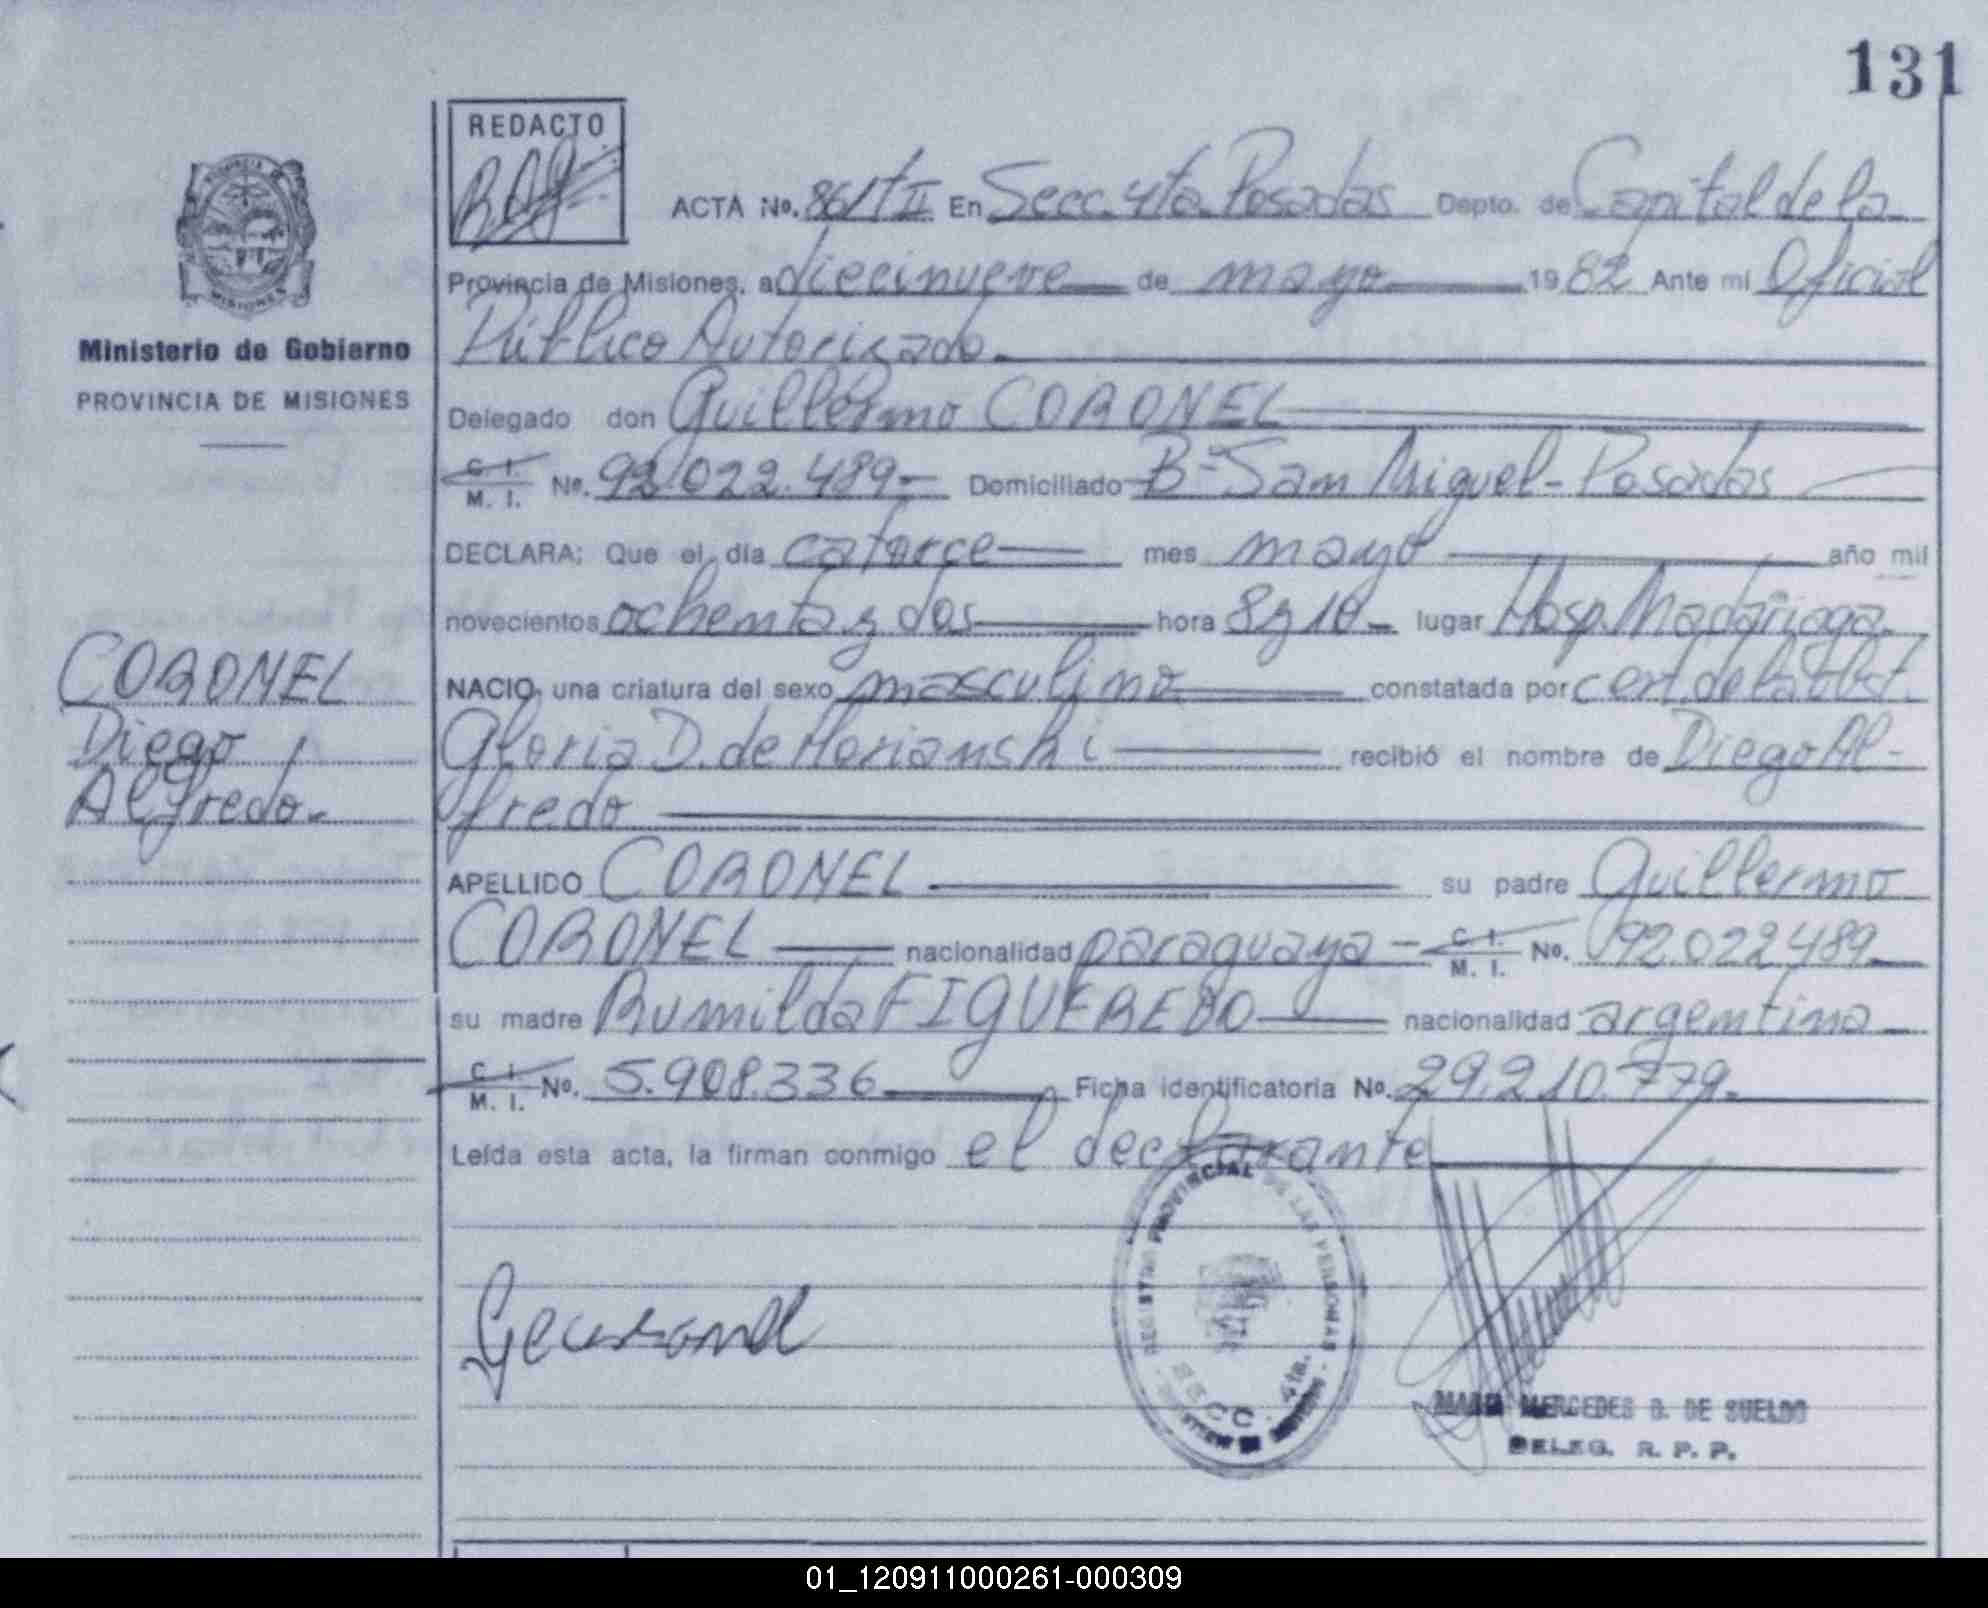 131
REDACTO
ACTA No. 861 T II En Secc. 4ta. Posadas Depto. de Capital de la
Provincia de Misiones, a diecinueve de mayo 1982 Ante mi Oficial
Público Autorizado.
Delegado don Guillermo CORONEL
C. I. M. I. No. 92.022.489.- Domiciliado B- San Miguel - Posadas
DECLARA: Que el día catorce mes mayo año mil
novecientos ochenta y dos hora 8 y 10 - lugar Hosp. Madariaga.
NACIO, una criatura del sexo masculino constatada por cert. de la obst.
Gloria D. de recibió el nombre de Diego Al-
fredo
APELLIDO CORONEL su padre Guillermo
CORONEL nacionalidad paraguaya - C. I. M. I. No. 92.022.489.
su madre Rumilda FIGUEREDO nacionalidad argentina
C. I. M. I. No. 5.908.336 Ficha identificatoria No. 29.210.779.
Leída esta acta, la firman conmigo el declarante
PROVINCIA
MISIONES
Ministerio de Gobierno
PROVINCIA DE MISIONES
CORONEL
Diego
Alfredo.-
REGISTRO PROVINCIAL DE LAS PERSONAS
SECC. 4ta.
MERCEDES D. DE SUELDO
DELEG. R. P. P.
01_120911000261-000309